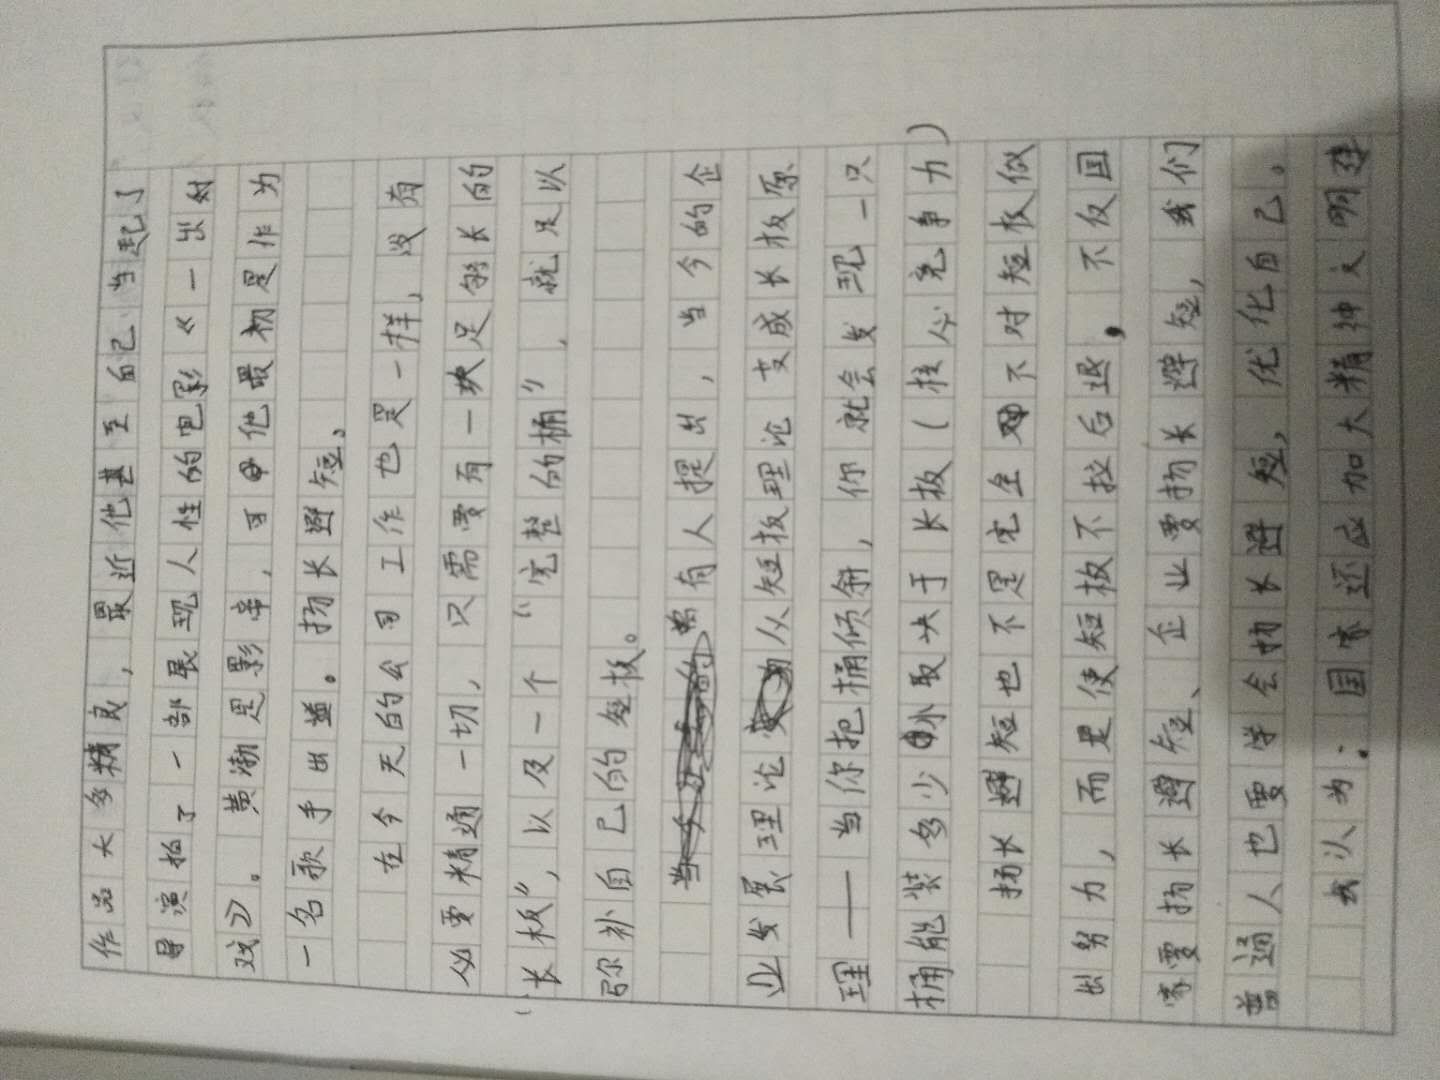 作品大多精良，最近他甚至自己当起了
导演拍了一部展现人性的电影《一出好
戏》。黄渤是影帝，可他最初是作为
一名歌手出道。扬长避短。
在今天的公司工作也是一样，没有
必要精通一切，只需要有一块足够长的
“长板”，以及一个“完整的桶”，就足以
弥补自己的短板。
有人提出，当今的企
业发展理论从短板理论变成长板原
理——当你把桶倾斜，你就会发现一只
桶能装多少水取决于长板（核心竞争力）
扬长避短也不是完全不对短板做
出努力，而是使短板不拉后退，不仅国
家要扬长避短、企业要扬长避短，我们
普通人也要学会扬长避短，优化自己。
我认为：国家还应加大精神文明建